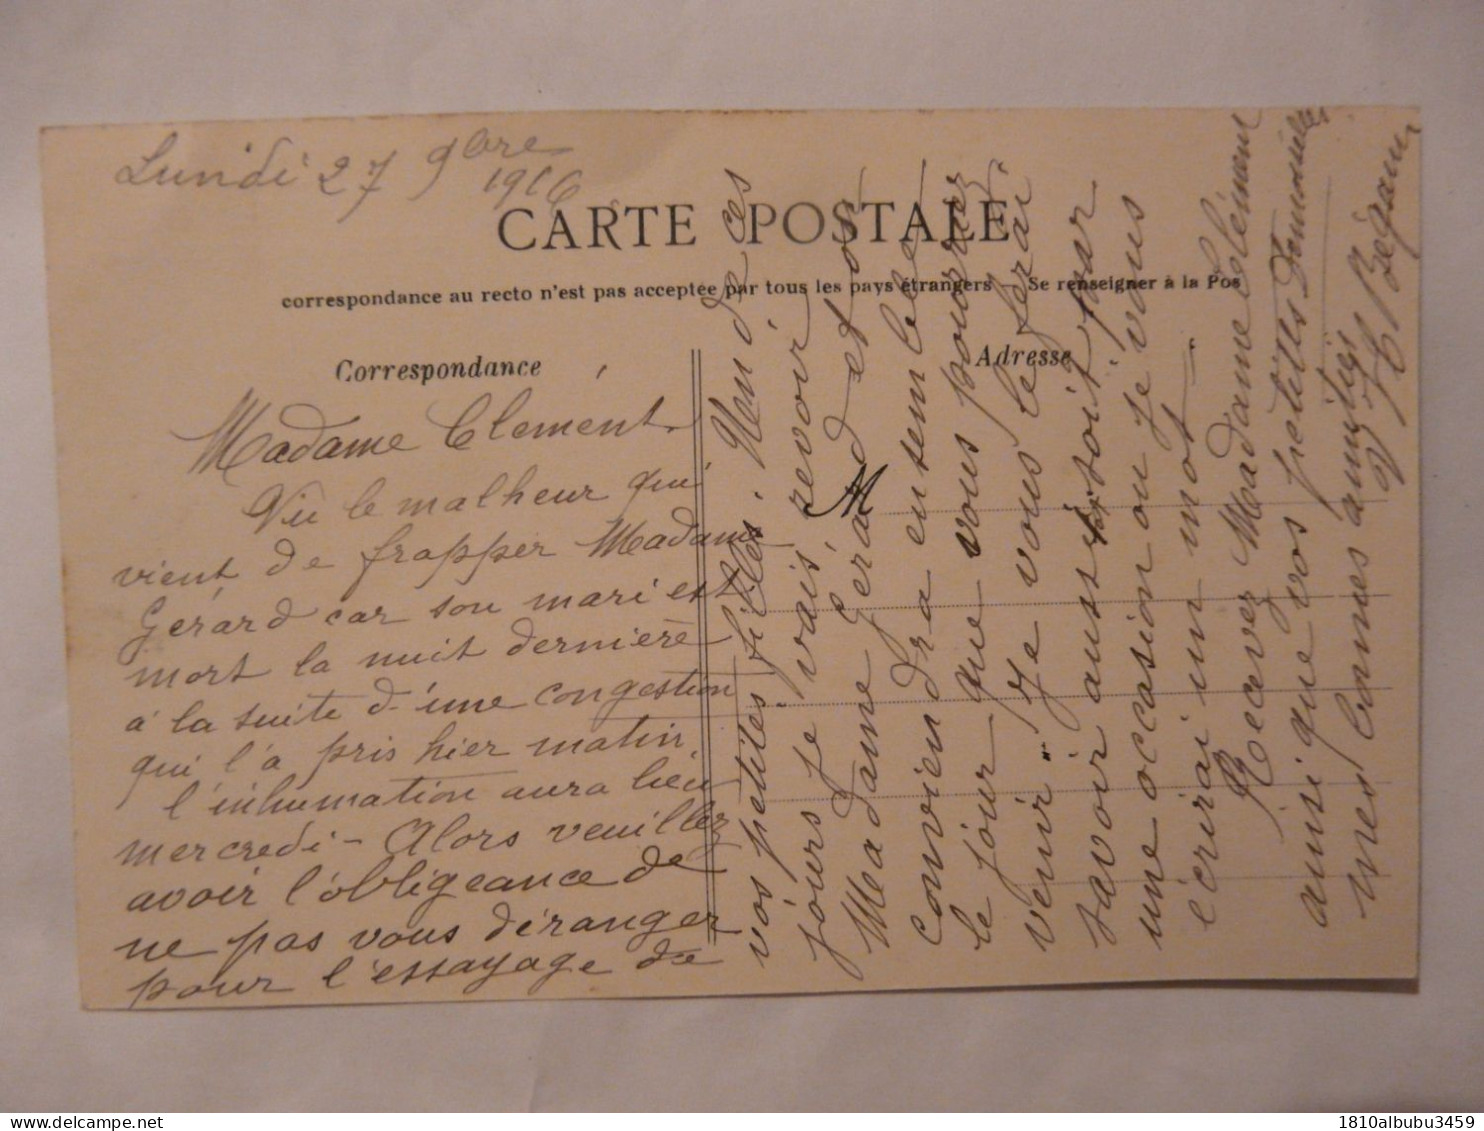 Lundi 27 9bre
1916
CARTE POSTALE
correspondance au recto n'est pas acceptée par tous les pays étrangers Se renseigner à la Pos
Correspondance
Adresse
M
Madame Clément.
Vu le malheur qui
vient de frapper Madame
Gérard car son mari est
mort la nuit dernière
à la suite d'une congestion
qui l'a pris hier matin,
l'inhumation aura lieu
mercredi - Alors veuillez
avoir l'obligeance de
ne pas vous déranger
pour l'essayage de
vos petites filles. Un de ces
jours je vais revoir
Madame Gérard et on
conviendra ensemble
le jour que vous pourrez
venir. Je vous le ferai
savoir aussitôt soit par
une occasion ou je vous
écrirai un mot
Recevez Madame Clément
ainsi que vos petites Demoiselles
mes bonnes amitiés